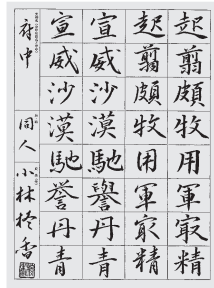 起翦頗牧用軍㝡精
起翦頗牧用軍㝡精
宣威沙漠馳譽丹青
宣威沙漠馳誉丹青
府中
同人
小林
香